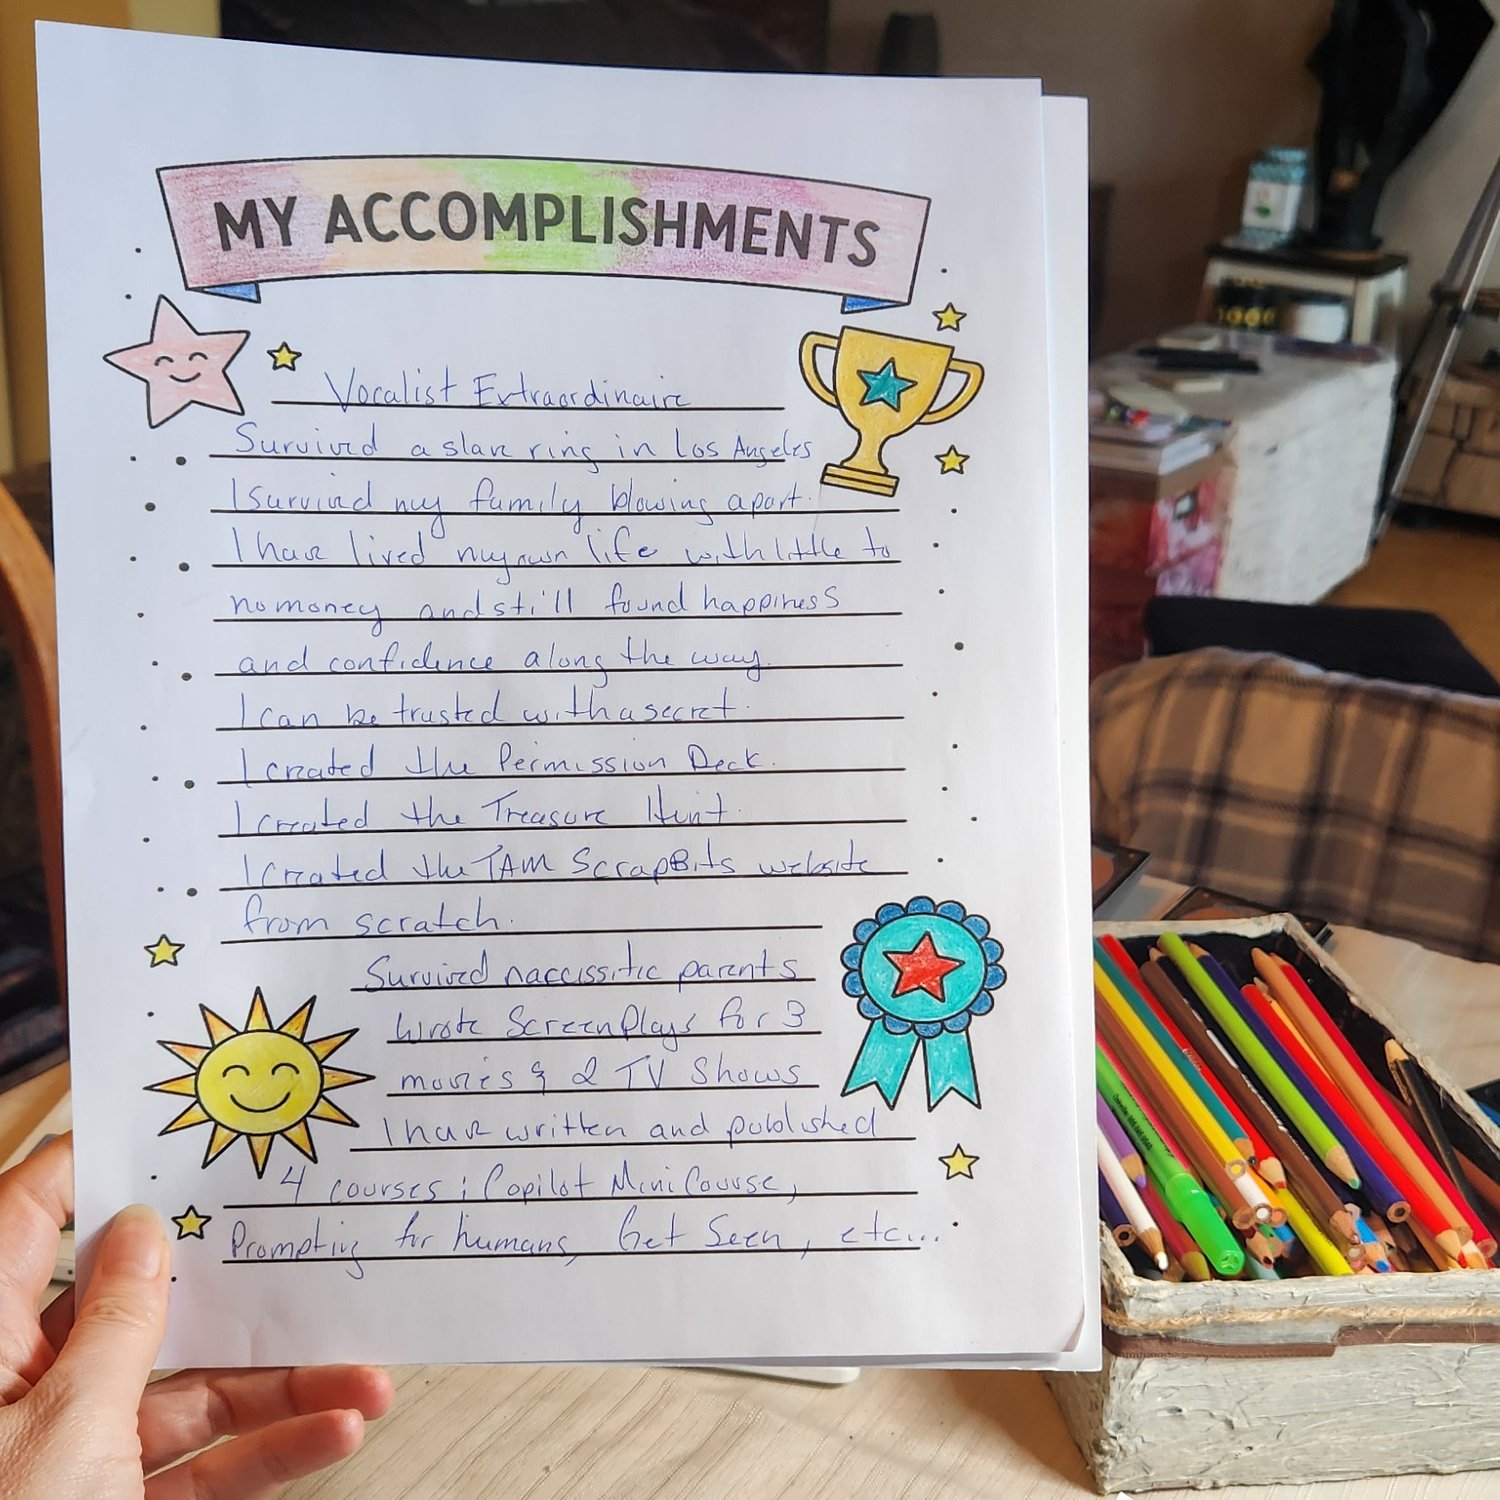 MY ACCOMPLISHMENTS
Vocalist Extraordinaire
Survived a slave ring in Los Angeles
I survived my family blowing apart.
I have lived my own life with little to
no money and still found happiness
and confidence along the way.
I can be trusted with a secret.
I created the Permission Deck.
I created the Treasure Hunt.
I created the TAM ScrapBits website
from scratch.
Survived narcissitic parents
Wrote Screenplays for 3
movies & 2 TV Shows
I have written and published
4 courses; Copilot Mini Course,
Prompting for humans, Get Seen, etc...